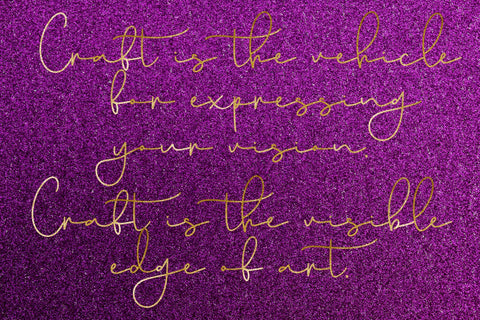 Craft is the vehicle
for expressing
your vision.
Craft is the visible
edge of art.